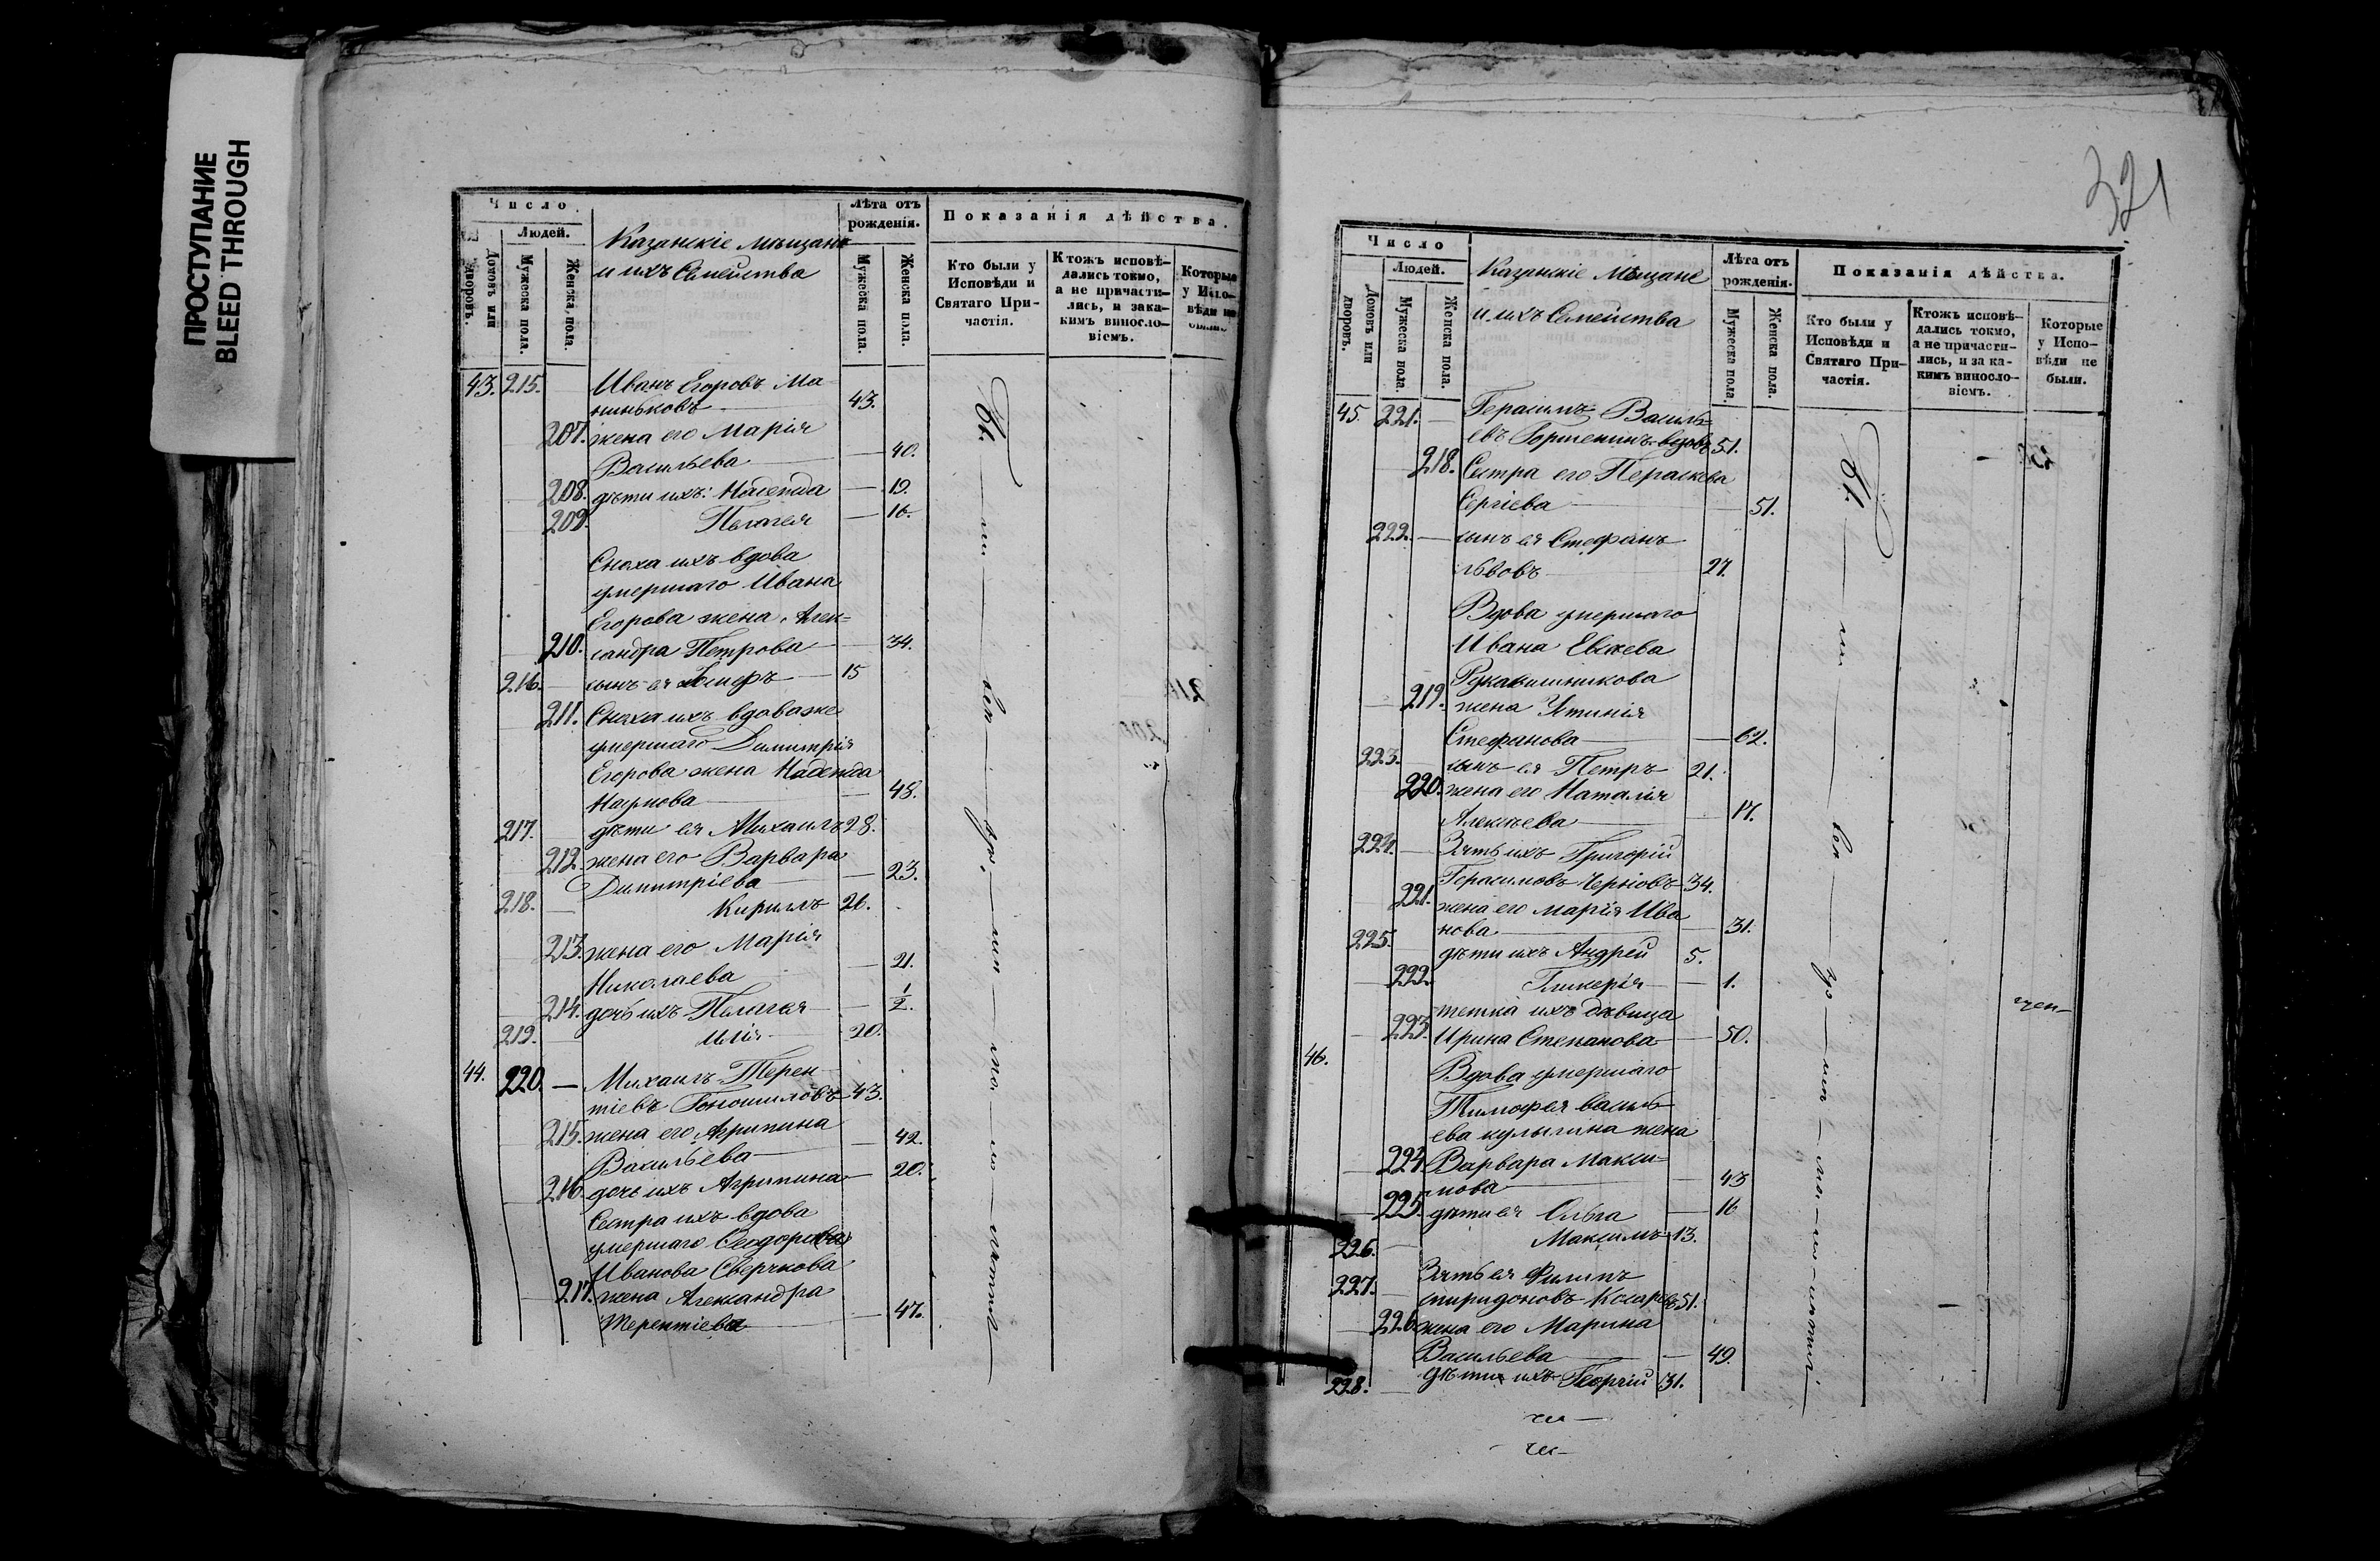 ПРОСТУПАНИЕ
BLEED THROUGH
Число.
Людей.
Домовъ или дворовъ.
Мужеска пола.
Женска пола.
Казанскіе мѣщане
и ихъ Семейства
Лѣта отъ рожденія.
Мужеска пола.
Женска пола.
Показанія дѣйства.
Кто были у Исповѣди и Святаго Причастія.
Ктожъ исповѣдались токмо, а не причастились, и закакимъ винословіемъ.
Которые у Исповѣди не были.
43. 215. Иванъ Егоровъ Ма-
ниньковъ 43.
207. жена его Марія
Васильева — 40.
208. дѣти ихъ: Надежда — 19.
209. Пелагея — 16.
Сноха ихъ вдова
умершаго Ивана
Егорова жена Алек=
210. сандра Петрова — 34.
216. — сынъ ея — 15
211. Сноха ихъ вдова же
умершаго Димитрія
Егорова жена Надежда
Наумова — 48.
217. дѣти ея Михаилъ 28.
212. жена его Варвара
Димитріева — 23.
218. — Кириллъ 26.
213. жена его Марія
Николаева — 21.
214. дочь ихъ Пелагея — 1/2.
219. Илія 20.
44. 220. — Михаилъ Терен
тіевъ 43.
215. жена его Агрипина
Васильева — 42.
216. дочь ихъ Агрипина — 20.
Сестра ихъ вдова
умершаго Ѳеодора
Иванова Сверчкова
217. жена Александра
Терентіева — 47.
321
Число
Людей.
Домовъ или дворовъ.
Мужеска пола.
Женска пола.
Казанскіе Мѣщане
и ихъ Семейства
Лѣта отъ рожденія.
Мужеска пола.
Женска пола.
Показанія дѣйства.
Кто были у Исповѣди и Святаго Причастія.
Ктожъ исповѣдались токмо, а не причастились, и за какимъ винословіемъ.
Которые у Исповѣди не были.
45. 221. — Герасимъ Василь-
евъ Горшенинъ вдовъ 51.
218. Сестра его Параскева
Сергіева — 51.
222. — сынъ ея Стефанъ
Львовъ 27.
Вдова умершаго
Ивана
Рукавишникова
219. жена Устинія
Стефанова — 62.
223. сынъ ея Петръ 21.
220. жена его Наталія
Алексѣева — 17.
224. — Зять ихъ Григорій
Герасимовъ 34.
221. жена его Марія Ива
нова — 31.
225. дѣти ихъ Андрей 5.
222. Гликерія — 1.
223. тетка ихъ дѣвица
Ирина Степанова — 50.
46. Вдова умершаго
Тимофея Василь
ева Кулыгина жена
224. Варвара Макси=
мова — 43
225. дѣти ея Ольга — 16
226. — Максимъ 13.
227. — Зять ея Филипъ
Спиридоновъ 51.
226. жена его Марина
Васильева — 49.
228. — дѣти ихъ Георгій 31.